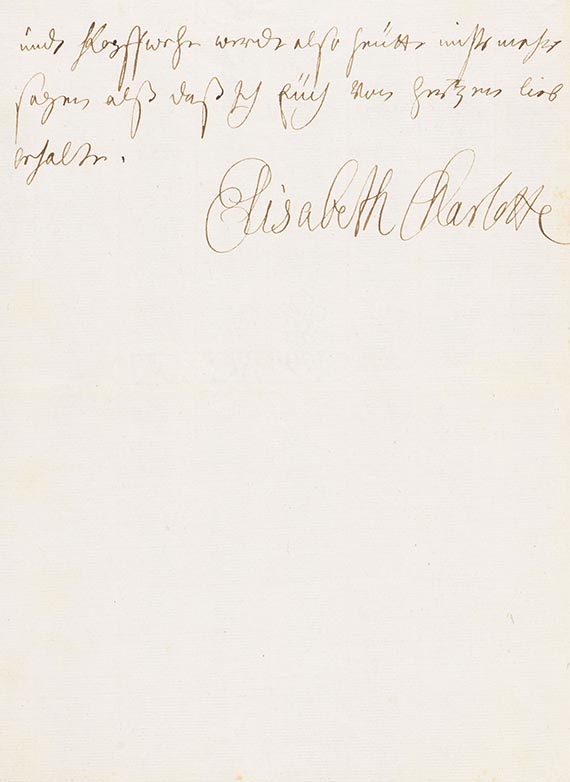 undt Kopffwehe werde also heütte nichts mehr
sagen alß daß Ich Eüch von hertzen lieb
behalte.
Elisabeth Charlotte